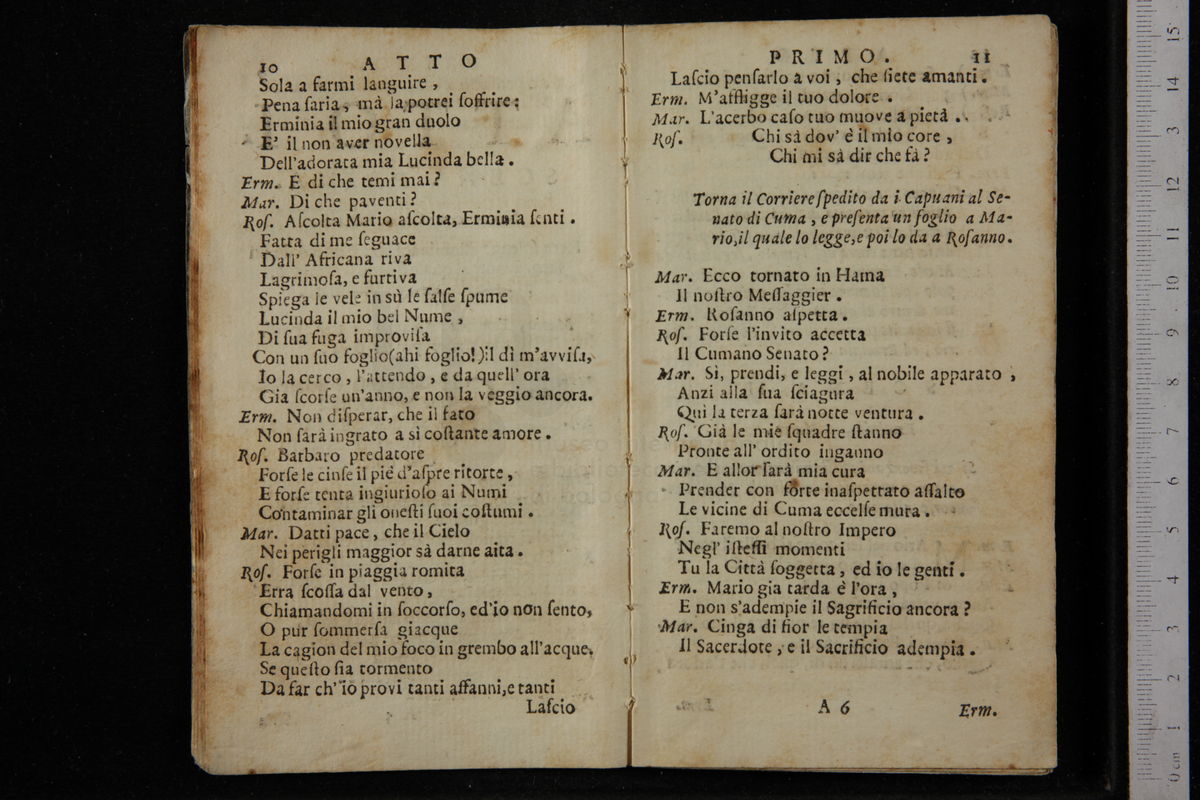 10 ATTO
Sola a farmi languire,
Pena ſaria, mà la potrei ſoffrire:
Erminia il mio gran duolo
E' il non aver novella
Dell'adorata mia Lucinda bella.
Erm. E di che temi mai?
Mar. Di che paventi?
Roſ. Aſcolta Mario aſcolta, Erminia ſenti.
Fatta di me ſeguace
Dall' Africana riva
Lagrimoſa, e furtiva
Spiega le vele in sù le ſalſe ſpume
Lucinda il mio bel Nume,
Di ſua fuga improviſa
Con un ſuo foglio(ahi foglio!)il dì m'avviſa,
Io la cerco, l'attendo, e da quell' ora
Gia ſcorſe un'anno, e non la veggio ancora.
Erm. Non diſperar, che il fato
Non ſarà ingrato a sì coſtante amore.
Roſ. Barbaro predatore
Forſe le cinſe il piè d'aſpre ritorte,
E forſe tenta ingiurioſo ai Numi
Contaminar gli oneſti ſuoi coſtumi.
Mar. Datti pace, che il Cielo
Nei perigli maggior sà darne aita.
Roſ. Forſe in piaggia romita
Erra ſcoſſa dal vento,
Chiamandomi in ſoccorſo, ed'io non ſento,
O pur ſommerſa giacque
La cagion del mio foco in grembo all'acque.
Se queſto ſia tormento
Da far ch' io provi tanti affanni,e tanti
Laſcio
PRIMO. 11
Laſcio penſarlo a voi, che ſiete amanti.
Erm. M'affligge il tuo dolore.
Mar. L'acerbo caſo tuo muove a pietà.
Roſ. Chi sà dov' è il mio core,
Chi mi sà dir che fà?
Torna il Corriere ſpedito da i Capuani al Se-
nato di Cuma, e preſenta un foglio a Ma-
rio,il quale lo legge,e poi lo da a Roſanno.
Mar. Ecco tornato in Hama
Il noſtro Meſſaggier.
Erm. Roſanno aſpetta.
Roſ. Forſe l'invito accetta
Il Cumano Senato?
Mar. Sì, prendi, e leggi, al nobile apparato,
Anzi alla ſua ſciagura
Qui la terza ſarà notte ventura.
Roſ. Già le mie ſquadre ſtanno
Pronte all' ordito inganno
Mar. E allor ſarà mia cura
Prender con forte inaſpettato aſſalto
Le vicine di Cuma eccelſe mura.
Roſ. Faremo al noſtro Impero
Negl' iſteſſi momenti
Tu la Città ſoggetta, ed io le genti.
Erm. Mario gia tarda è l'ora,
E non s'adempie il Sagrificio ancora?
Mar. Cinga di fior le tempia
Il Sacerdote, e il Sacrificio adempia.
A 6 Erm.
0 cm 1 2 3 4 5 6 7 8 9 10 11 12 13 14 15